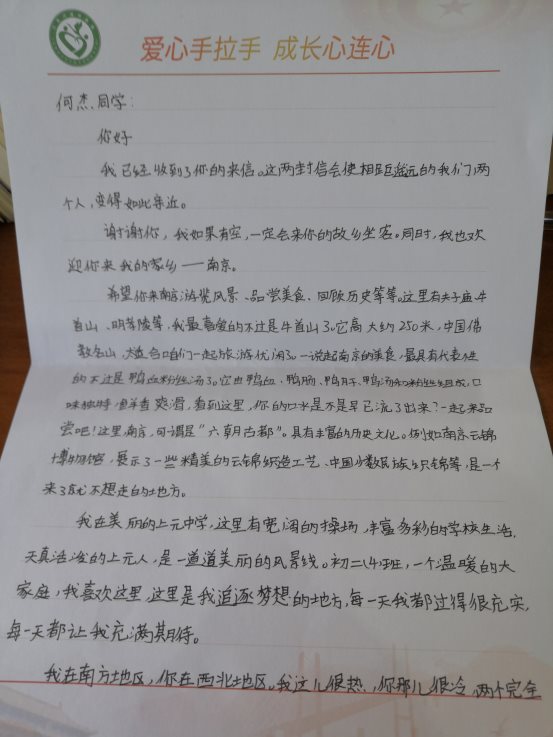 爱心手拉手 成长心连心
何杰同学：
你好
我已经收到了你的来信。这两封信会使相距遥远的我们两
个人，变得如此亲近。
谢谢你，我如果有空，一定会来你的故乡坐客。同时，我也欢
迎你来我的家乡——南京。
希望你来南京游览风景、品尝美食、回顾历史等等。这里有夫子庙、牛
首山、明孝陵等，我最喜爱的不过是牛首山了。它高大约250米，中国佛
教名山，适合咱们一起旅游优闲了。一说起南京的美食，最具有代表性
的不过是鸭血粉丝汤了。它由鸭血、鸭肠、鸭肝、鸭汤和粉丝组成，口
味独特，鲜香爽滑，看到这里，你的口水是不是早已流了出来？一起来品
尝吧！这里，南京，可谓是“六朝古都”。具有丰富的历史文化。例如南京云锦
博物馆，展示了一些精美的云锦织造工艺、中国少数民族织锦等，是一个
来了就不想走的地方。
我在美丽的上元中学，这里有宽阔的操场，丰富多彩的学校生活，
天真活泼的上元人，是一道道美丽的风景线。初二14班，一个温暖的大
家庭，我喜欢这里，这里是我追逐梦想的地方，每一天我都过得很充实，
每一天都让我充满期待。
我在南方地区，你在西北地区。我这儿很热，你那儿很冷，两个完全